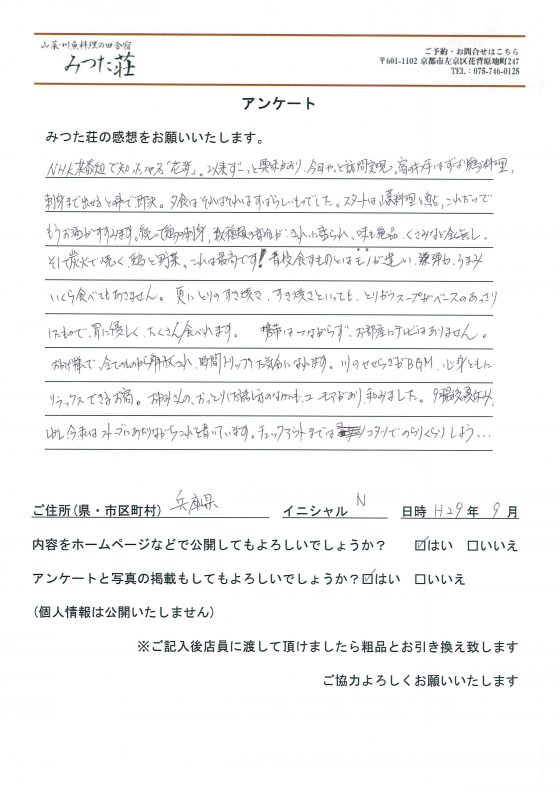 山菜・川魚料理の田舎宿
みつた荘
ご予約・お問合せはこちら
〒601-1102 京都市左京区花背原地町247
TEL：075-746-0125
アンケート
みつた荘の感想をお願いいたします。
NHK某番組で知った地名「花背」。以来ずーっと興味があり、今日やっと訪問実現。宿のキメ手はずばり鶏料理。
刺身まで出せるとの事で即決。夕食はそれぞれすばらしいものでした。スタートは山菜料理と鮎、これだけで
もうお酒がすすみます。続いて鶏の刺身、数種類の部位がきれいに盛られ、味も絶品、くさみなど全く無し。
そして炭火で焼く、鶏と野菜。これは最高です! 普段食すものとはモノが違い、弾力、うまみ
いくら食べてもあきません。更にとりのすき焼き、すき焼きといっても、とりがらスープがベースのあっさり
したもので、胃に優しく、たくさん食べれます。携帯はつながらず、お部屋にテレビはありません。
おかげ様で、全てのものから解放され、時間トリップした気分になれます。川のせせらぎがBGM、心身ともに
リラックスできるお宿。女将さんの、おっとりした話し方のなかにも、ユーモアがあり、和みました。9月最後の夏休み、
しかし今私はストーブにあたりながらこれを書いています。チェックアウトまではコタツでのらりくらりしよう…
ご住所(県・市区町村) 兵庫県 イニシャル N 日時 H29年 9月
内容をホームページなどで公開してもよろしいでしょうか？ ☑はい □いいえ
アンケートと写真の掲載もしてもよろしいでしょうか？☑はい □いいえ
(個人情報は公開いたしません)
※ご記入後店員に渡して頂けましたら粗品とお引き換え致します
ご協力よろしくお願いいたします